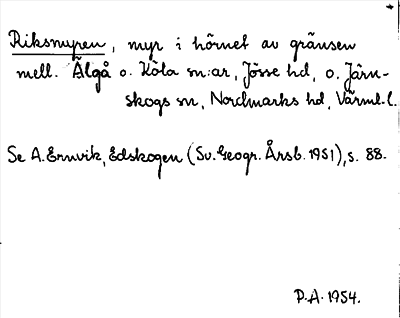 Riksmyren, myr i hörnet av gränsen
mell. Älgå o. Köla sn:ar, Jösse hd, o. Järn-
skogs sn, Nordmarks hd, Värml. l.
Se A. Ernvik, Edskogen (Sv. Geogr. Årsb. 1951), s. 88.
P.A. 1954.